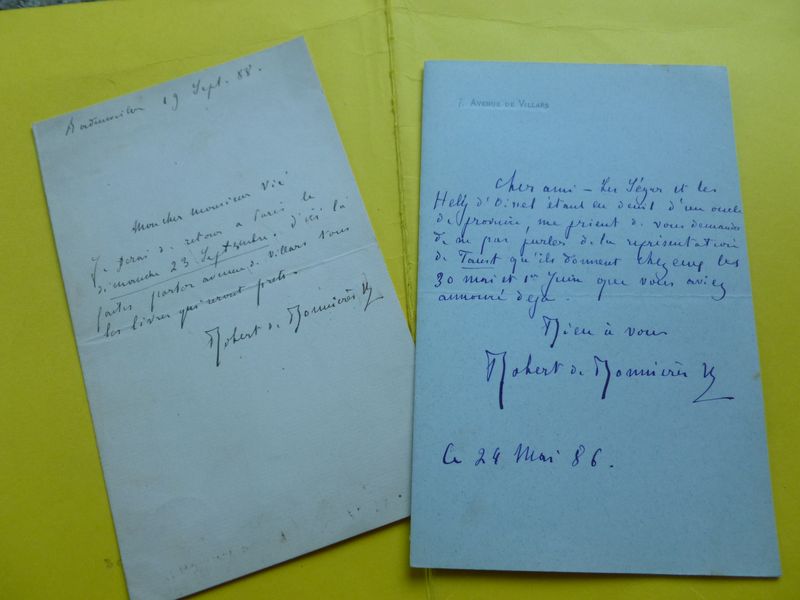 19 Sept. 88.
Mon cher Monsieur Vié
Je serai de retour à Paris le
dimanche 23 Septembre. d'ici là
faites porter avenue de Villars tous
les livres qui seront prêts.
Robert de Bonnières
7. AVENUE DE VILLARS
Cher ami – Les Ségur et les
Helly d'Oissel étant en deuil d'un oncle
de province, me prient de vous demander
de ne pas parler de la représentation
de Faust qu'ils donnent chez eux les
30 mai et 1er Juin que vous aviez
annoncé deja.
Bien à vous
Robert de Bonnières
Ce 24 Mai 86.